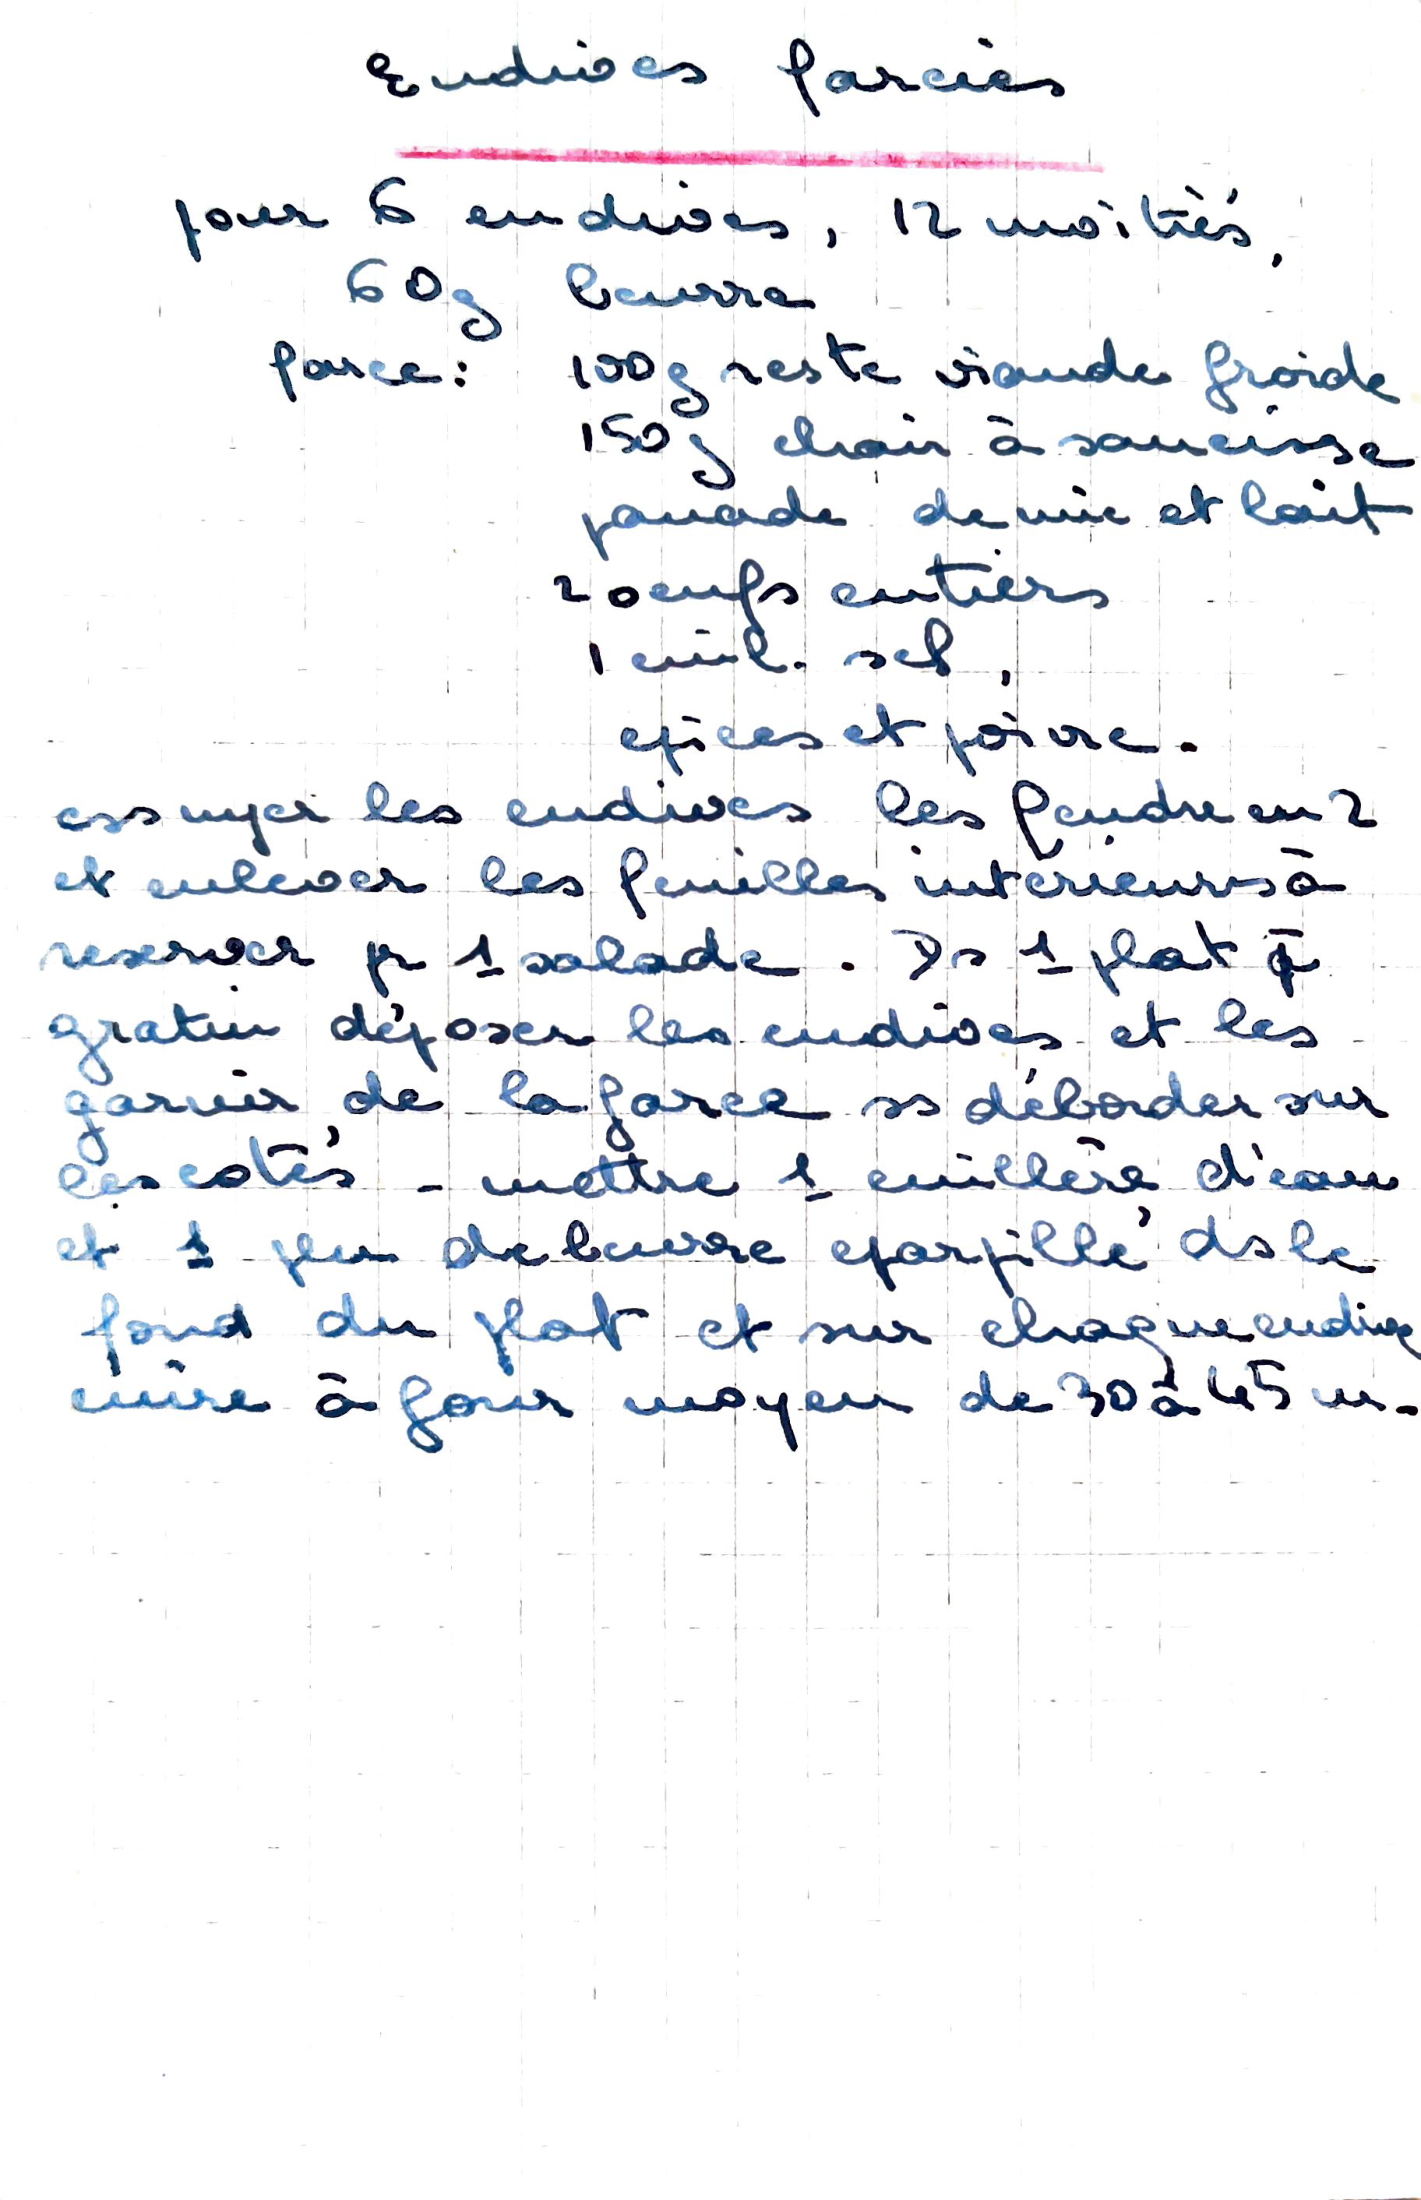 Endives farcies
pour 6 endives, 12 moitiés,
60g beurre
farce: 100g reste viande froide
150g chair à saucisse
panade de mie et lait
2 oeufs entiers
1 cuil. sel,
epices et poivre.
essuyer les endives les fendre en 2
et enlever les feuilles interieures à
reserver pr 1 salade. Ds 1 plat
gratin déposer les endives et les
garnir de la farce ss déborder sur
les cotés - mettre 1 cuillère d'eau
et 1 peu de beurre eparpillé ds le
fond du plat et sur chaque endive
cuire à four moyen de 30 à 45 m.